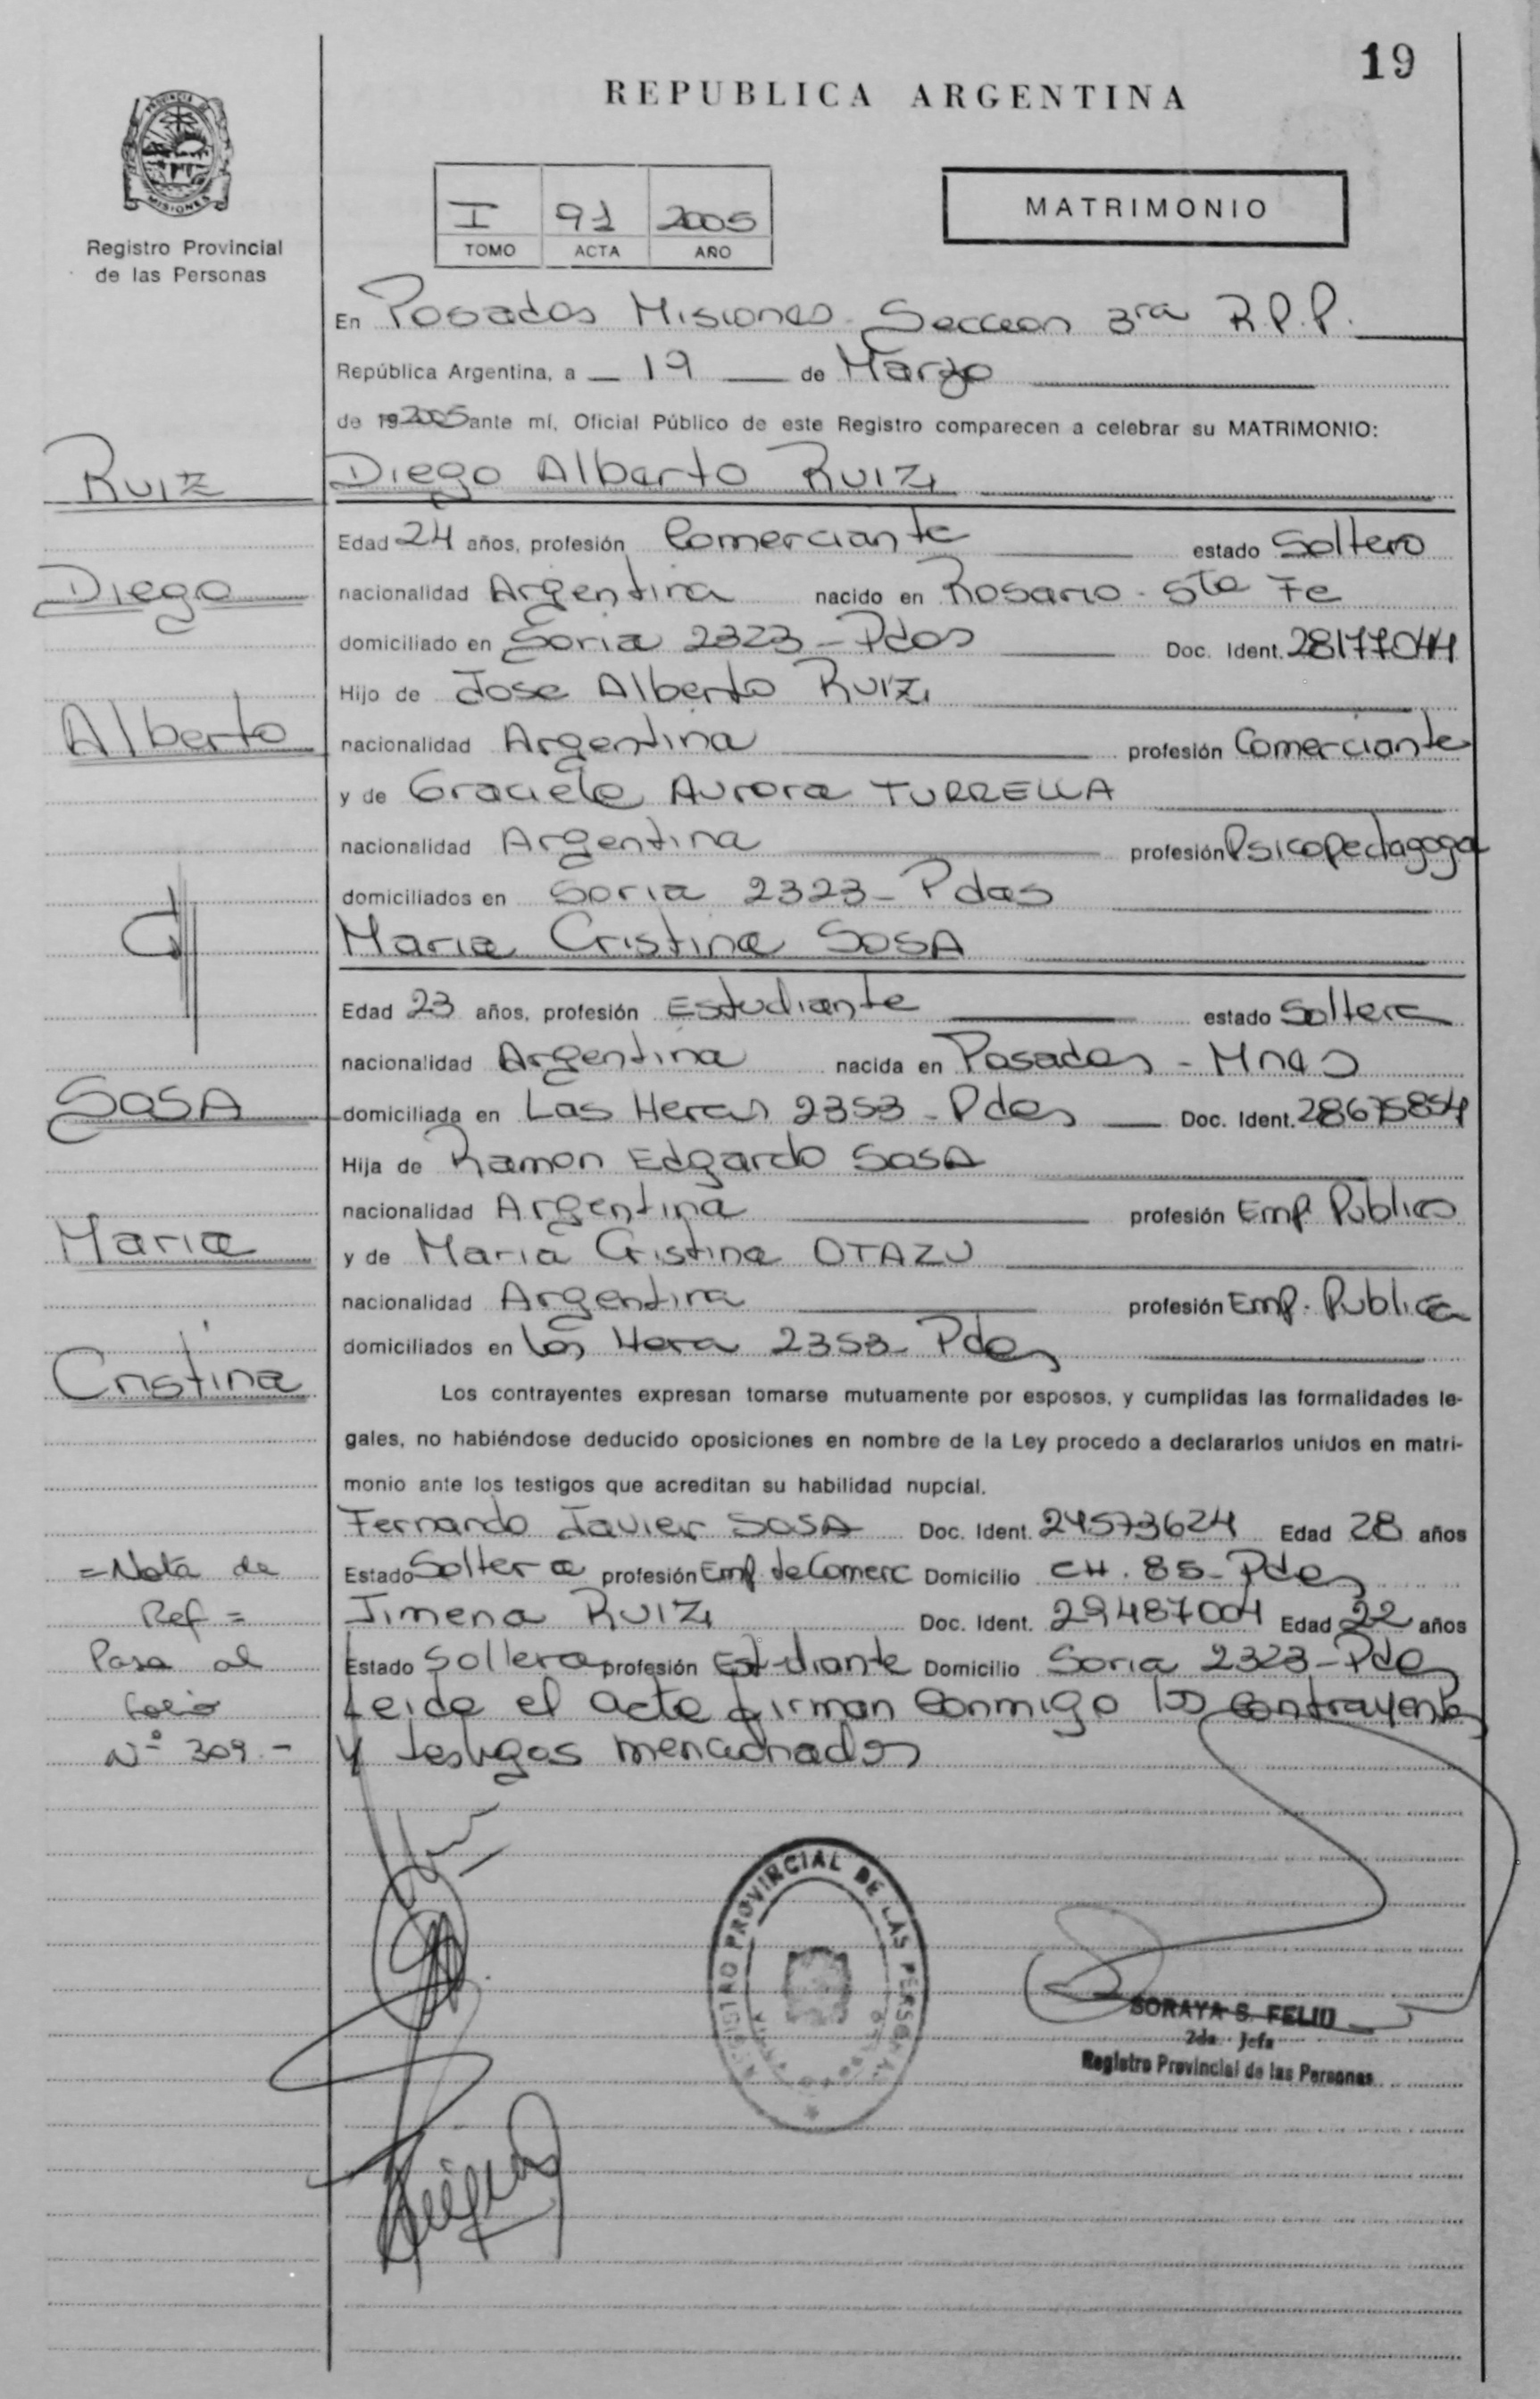 19
REPUBLICA ARGENTINA
PROVINCIA DE
MISIONES
Registro Provincial
de las Personas
I 91 2005
TOMO ACTA AÑO
MATRIMONIO
En Posadas Misiones Seccion 3ra R.P.P.
República Argentina, a 19 de Marzo
de 19 2005 ante mí, Oficial Público de este Registro comparecen a celebrar su MATRIMONIO:
Ruiz
Diego Alberto Ruiz
Edad 24 años, profesión Comerciante estado Soltero
Diego
nacionalidad Argentina nacido en Rosario - Sta Fe
domiciliado en Soria 2323 - Pdas Doc. Ident. 28177044
Hijo de Jose Alberto Ruiz
Alberto
nacionalidad Argentina profesión Comerciante
y de Graciela Aurora TURRELLA
nacionalidad Argentina profesión Psicopedagoga
domiciliados en Soria 2323 - Pdas
Maria Cristina SOSA
Edad 23 años, profesión Estudiante estado Soltera
nacionalidad Argentina nacida en Posadas - Mnes
SOSA
domiciliada en Las Heras 2353 - Pdas Doc. Ident. 28675854
Hija de Ramon Edgardo SOSA
nacionalidad Argentina profesión Emp. Publico
Maria
y de Maria Cristina OTAZU
nacionalidad Argentina profesión Emp. Publica
domiciliados en Las Hera 2353 - Pdas
Cristina
Los contrayentes expresan tomarse mutuamente por esposos, y cumplidas las formalidades le-
gales, no habiéndose deducido oposiciones en nombre de la Ley procedo a declararlos unidos en matri-
monio ante los testigos que acreditan su habilidad nupcial.
Fernando Javier SOSA Doc. Ident. 24573624 Edad 28 años
=Nota de
Estado Soltero profesión Emp. de Comerc Domicilio CH. 85 - Pdas
Ref =
Jimena RUIZ Doc. Ident. 29487004 Edad 22 años
Pasa al
Estado Soltera profesión Estudiante Domicilio Soria 2323 - Pdas
folio
Leida el acta firman conmigo los contrayentes
Nº 309.-
y testigos mencionados
REGISTRO PROVINCIAL DE LAS PERSONAS
SORAYA S. FELIU
2da. Jefa
Registro Provincial de las Personas